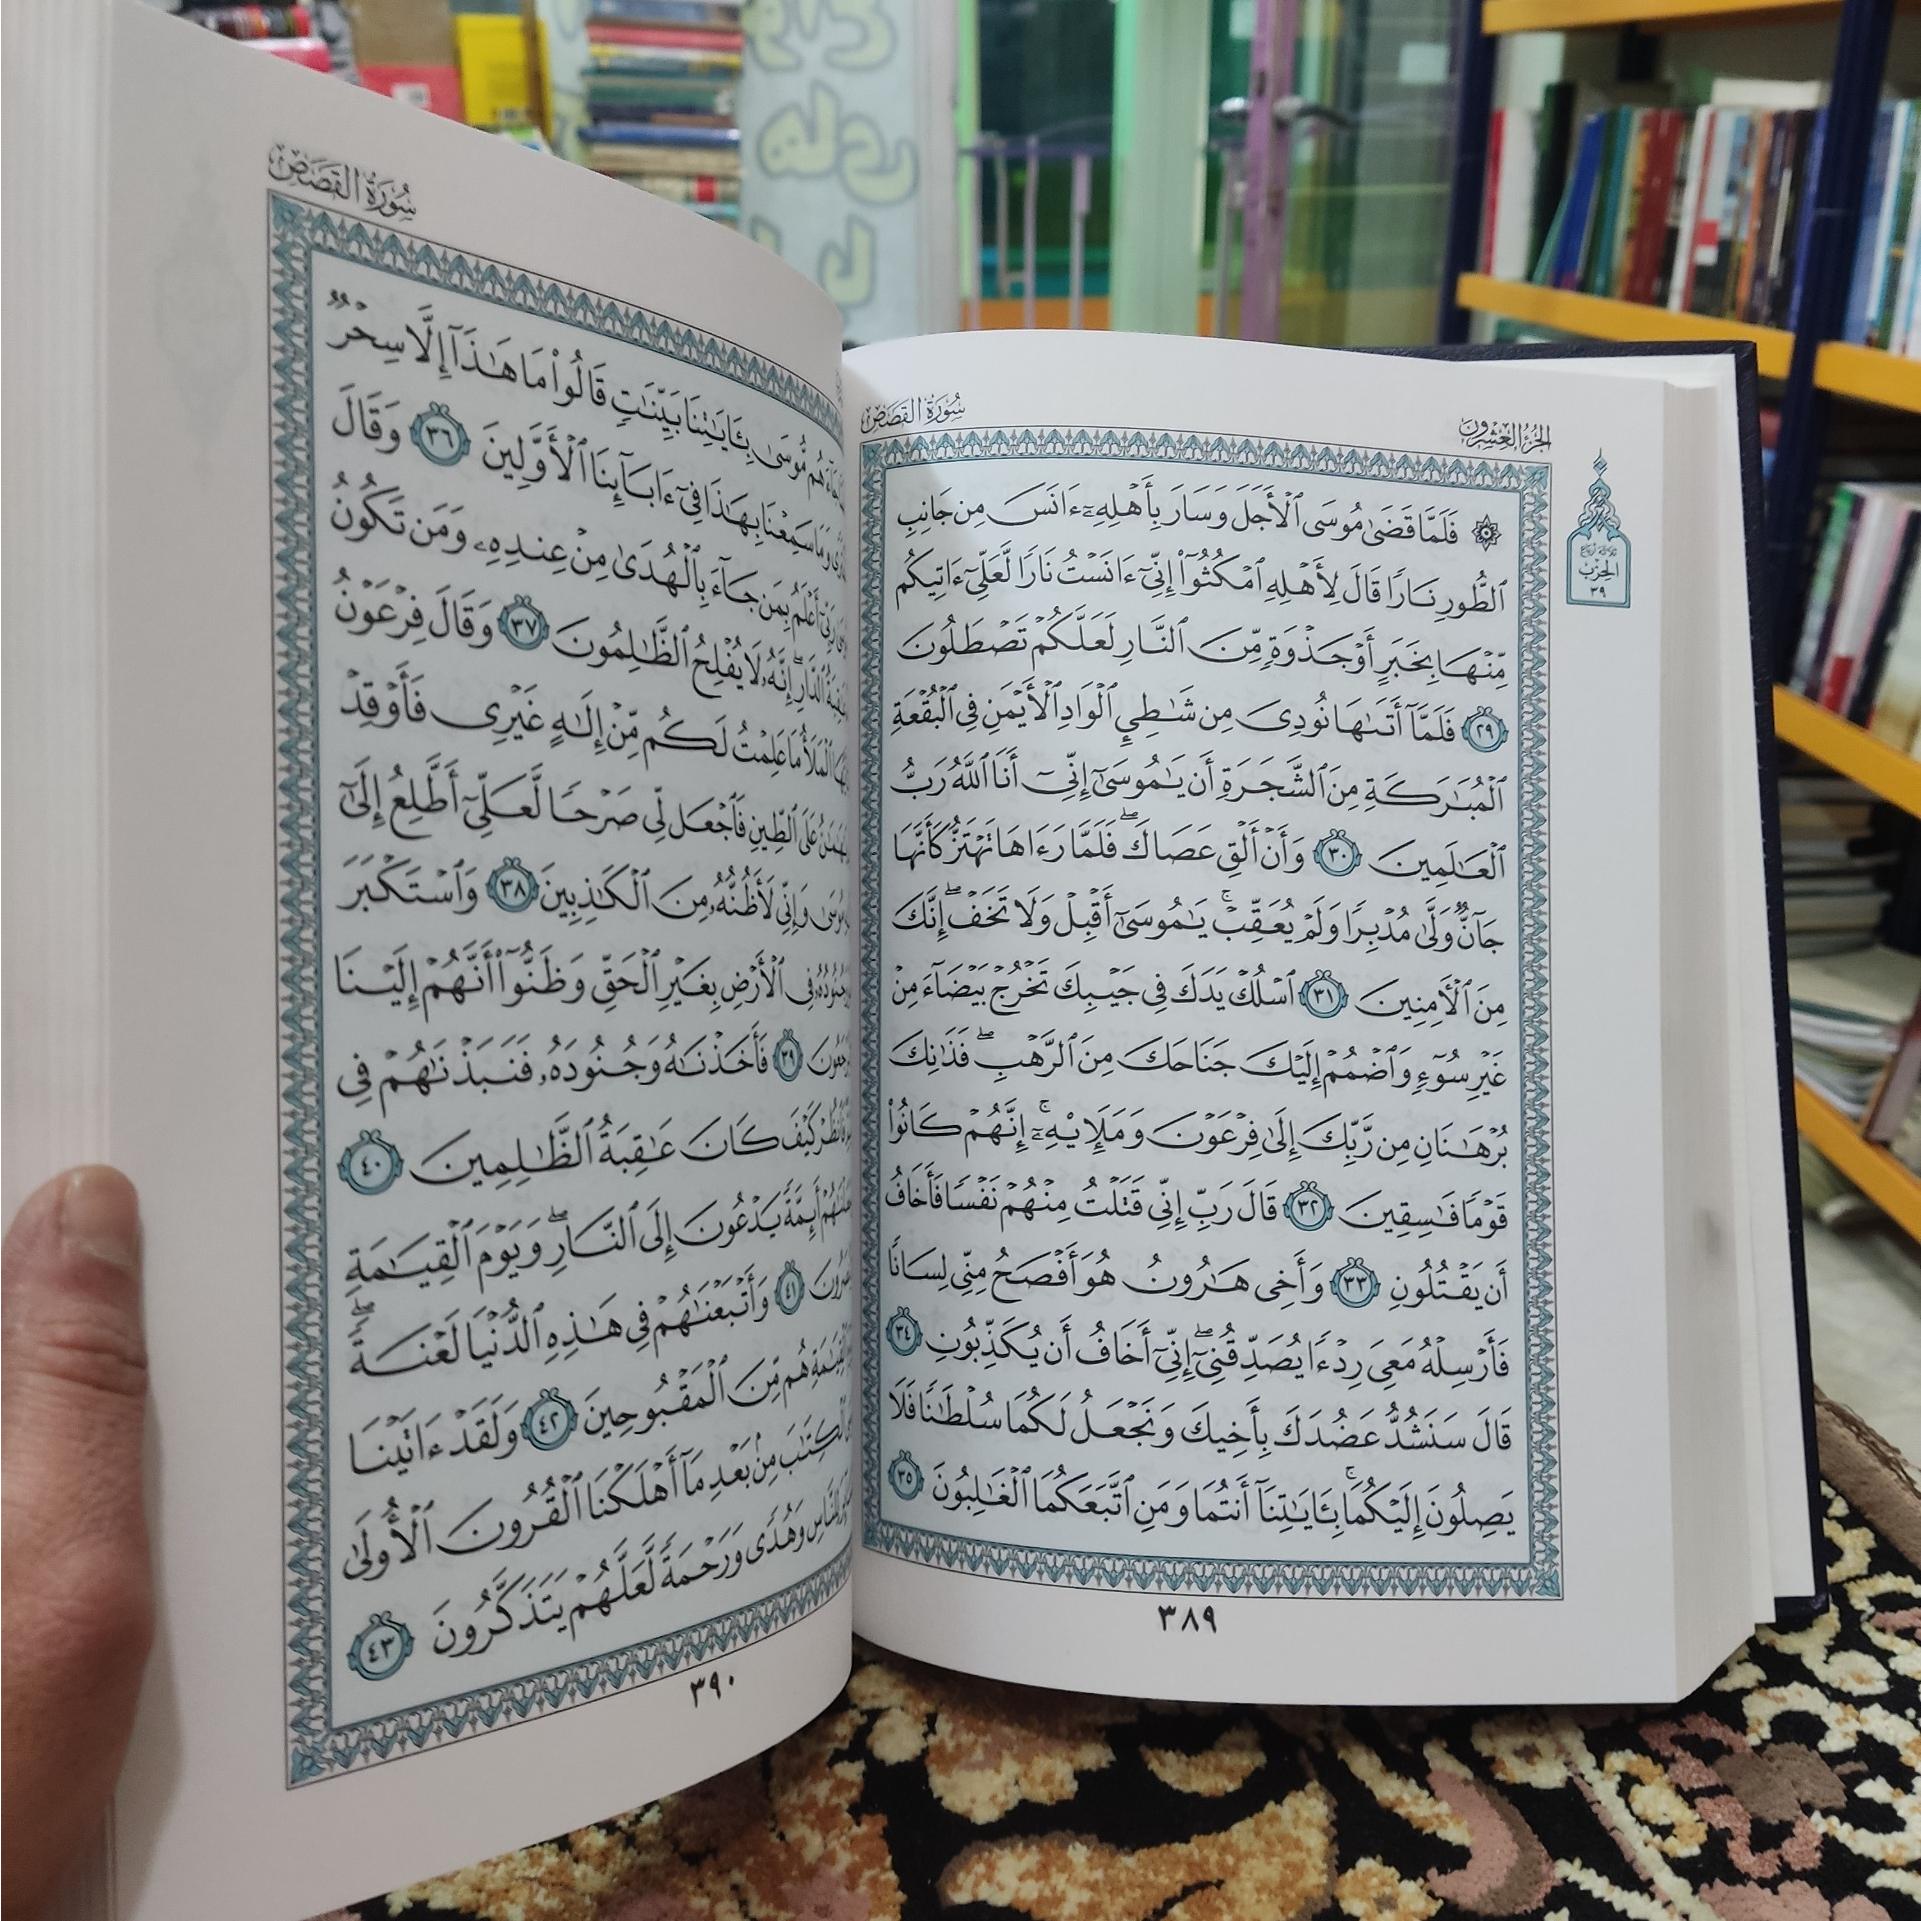 سُورَةُ القَصَصِ
الجُزْءُ العِشْرُونَ
ثلاثة أرباع
الحزب
٣٩
۞ فَلَمَّا قَضَىٰ مُوسَى ٱلْأَجَلَ وَسَارَ بِأَهْلِهِۦٓ ءَانَسَ مِن جَانِبِ
ٱلطُّورِ نَارًا قَالَ لِأَهْلِهِ ٱمْكُثُوٓا۟ إِنِّىٓ ءَانَسْتُ نَارًا لَّعَلِّىٓ ءَاتِيكُم
مِّنْهَا بِخَبَرٍ أَوْ جَذْوَةٍ مِّنَ ٱلنَّارِ لَعَلَّكُمْ تَصْطَلُونَ
٢٩ فَلَمَّآ أَتَىٰهَا نُودِىَ مِن شَٰطِئِ ٱلْوَادِ ٱلْأَيْمَنِ فِى ٱلْبُقْعَةِ
ٱلْمُبَٰرَكَةِ مِنَ ٱلشَّجَرَةِ أَن يَٰمُوسَىٰٓ إِنِّىٓ أَنَا ٱللَّهُ رَبُّ
ٱلْعَٰلَمِينَ ٣٠ وَأَنْ أَلْقِ عَصَاكَ ۖ فَلَمَّا رَءَاهَا تَهْتَزُّ كَأَنَّهَا
جَآنٌّ وَلَّىٰ مُدْبِرًا وَلَمْ يُعَقِّبْ ۚ يَٰمُوسَىٰٓ أَقْبِلْ وَلَا تَخَفْ ۖ إِنَّكَ
مِنَ ٱلْـَٔامِنِينَ ٣١ ٱسْلُكْ يَدَكَ فِى جَيْبِكَ تَخْرُجْ بَيْضَآءَ مِنْ
غَيْرِ سُوٓءٍ وَٱضْمُمْ إِلَيْكَ جَنَاحَكَ مِنَ ٱلرَّهْبِ ۖ فَذَٰنِكَ
بُرْهَٰنَانِ مِن رَّبِّكَ إِلَىٰ فِرْعَوْنَ وَمَلَإِي۟هِۦٓ ۚ إِنَّهُمْ كَانُوا۟
قَوْمًا فَٰسِقِينَ ٣٢ قَالَ رَبِّ إِنِّى قَتَلْتُ مِنْهُمْ نَفْسًا فَأَخَافُ
أَن يَقْتُلُونِ ٣٣ وَأَخِى هَٰرُونُ هُوَ أَفْصَحُ مِنِّى لِسَانًا
فَأَرْسِلْهُ مَعِىَ رِدْءًا يُصَدِّقُنِىٓ ۖ إِنِّىٓ أَخَافُ أَن يُكَذِّبُونِ ٣٤
قَالَ سَنَشُدُّ عَضُدَكَ بِأَخِيكَ وَنَجْعَلُ لَكُمَا سُلْطَٰنًا فَلَا
يَصِلُونَ إِلَيْكُمَا ۚ بِـَٔايَٰتِنَآ أَنتُمَا وَمَنِ ٱتَّبَعَكُمَا ٱلْغَٰلِبُونَ ٣٥
٣٨٩
سُورَةُ القَصَصِ
مُّوسَىٰ بِـَٔايَٰتِنَا بَيِّنَٰتٍ قَالُوا۟ مَا هَٰذَآ إِلَّا سِحْرٌ
وَمَا سَمِعْنَا بِهَٰذَا فِىٓ ءَابَآئِنَا ٱلْأَوَّلِينَ ٣٦ وَقَالَ
رَبِّىٓ أَعْلَمُ بِمَن جَآءَ بِٱلْهُدَىٰ مِنْ عِندِهِۦ وَمَن تَكُونُ
ٱلدَّارِ ۖ إِنَّهُۥ لَا يُفْلِحُ ٱلظَّٰلِمُونَ ٣٧ وَقَالَ فِرْعَوْنُ
ٱلْمَلَأُ مَا عَلِمْتُ لَكُم مِّنْ إِلَٰهٍ غَيْرِى فَأَوْقِدْ
عَلَى ٱلطِّينِ فَٱجْعَل لِّى صَرْحًا لَّعَلِّىٓ أَطَّلِعُ إِلَىٰٓ
مُوسَىٰ وَإِنِّى لَأَظُنُّهُۥ مِنَ ٱلْكَٰذِبِينَ ٣٨ وَٱسْتَكْبَرَ
وَجُنُودُهُۥ فِى ٱلْأَرْضِ بِغَيْرِ ٱلْحَقِّ وَظَنُّوٓا۟ أَنَّهُمْ إِلَيْنَا
٣٩ فَأَخَذْنَٰهُ وَجُنُودَهُۥ فَنَبَذْنَٰهُمْ فِى
كَيْفَ كَانَ عَٰقِبَةُ ٱلظَّٰلِمِينَ ٤٠
أَئِمَّةً يَدْعُونَ إِلَى ٱلنَّارِ ۖ وَيَوْمَ ٱلْقِيَٰمَةِ
٤١ وَأَتْبَعْنَٰهُمْ فِى هَٰذِهِ ٱلدُّنْيَا لَعْنَةً ۖ
هُم مِّنَ ٱلْمَقْبُوحِينَ ٤٢ وَلَقَدْ ءَاتَيْنَا
ٱلْكِتَٰبَ مِنۢ بَعْدِ مَآ أَهْلَكْنَا ٱلْقُرُونَ ٱلْأُولَىٰ
لِلنَّاسِ وَهُدًى وَرَحْمَةً لَّعَلَّهُمْ يَتَذَكَّرُونَ ٤٣
٣٩٠